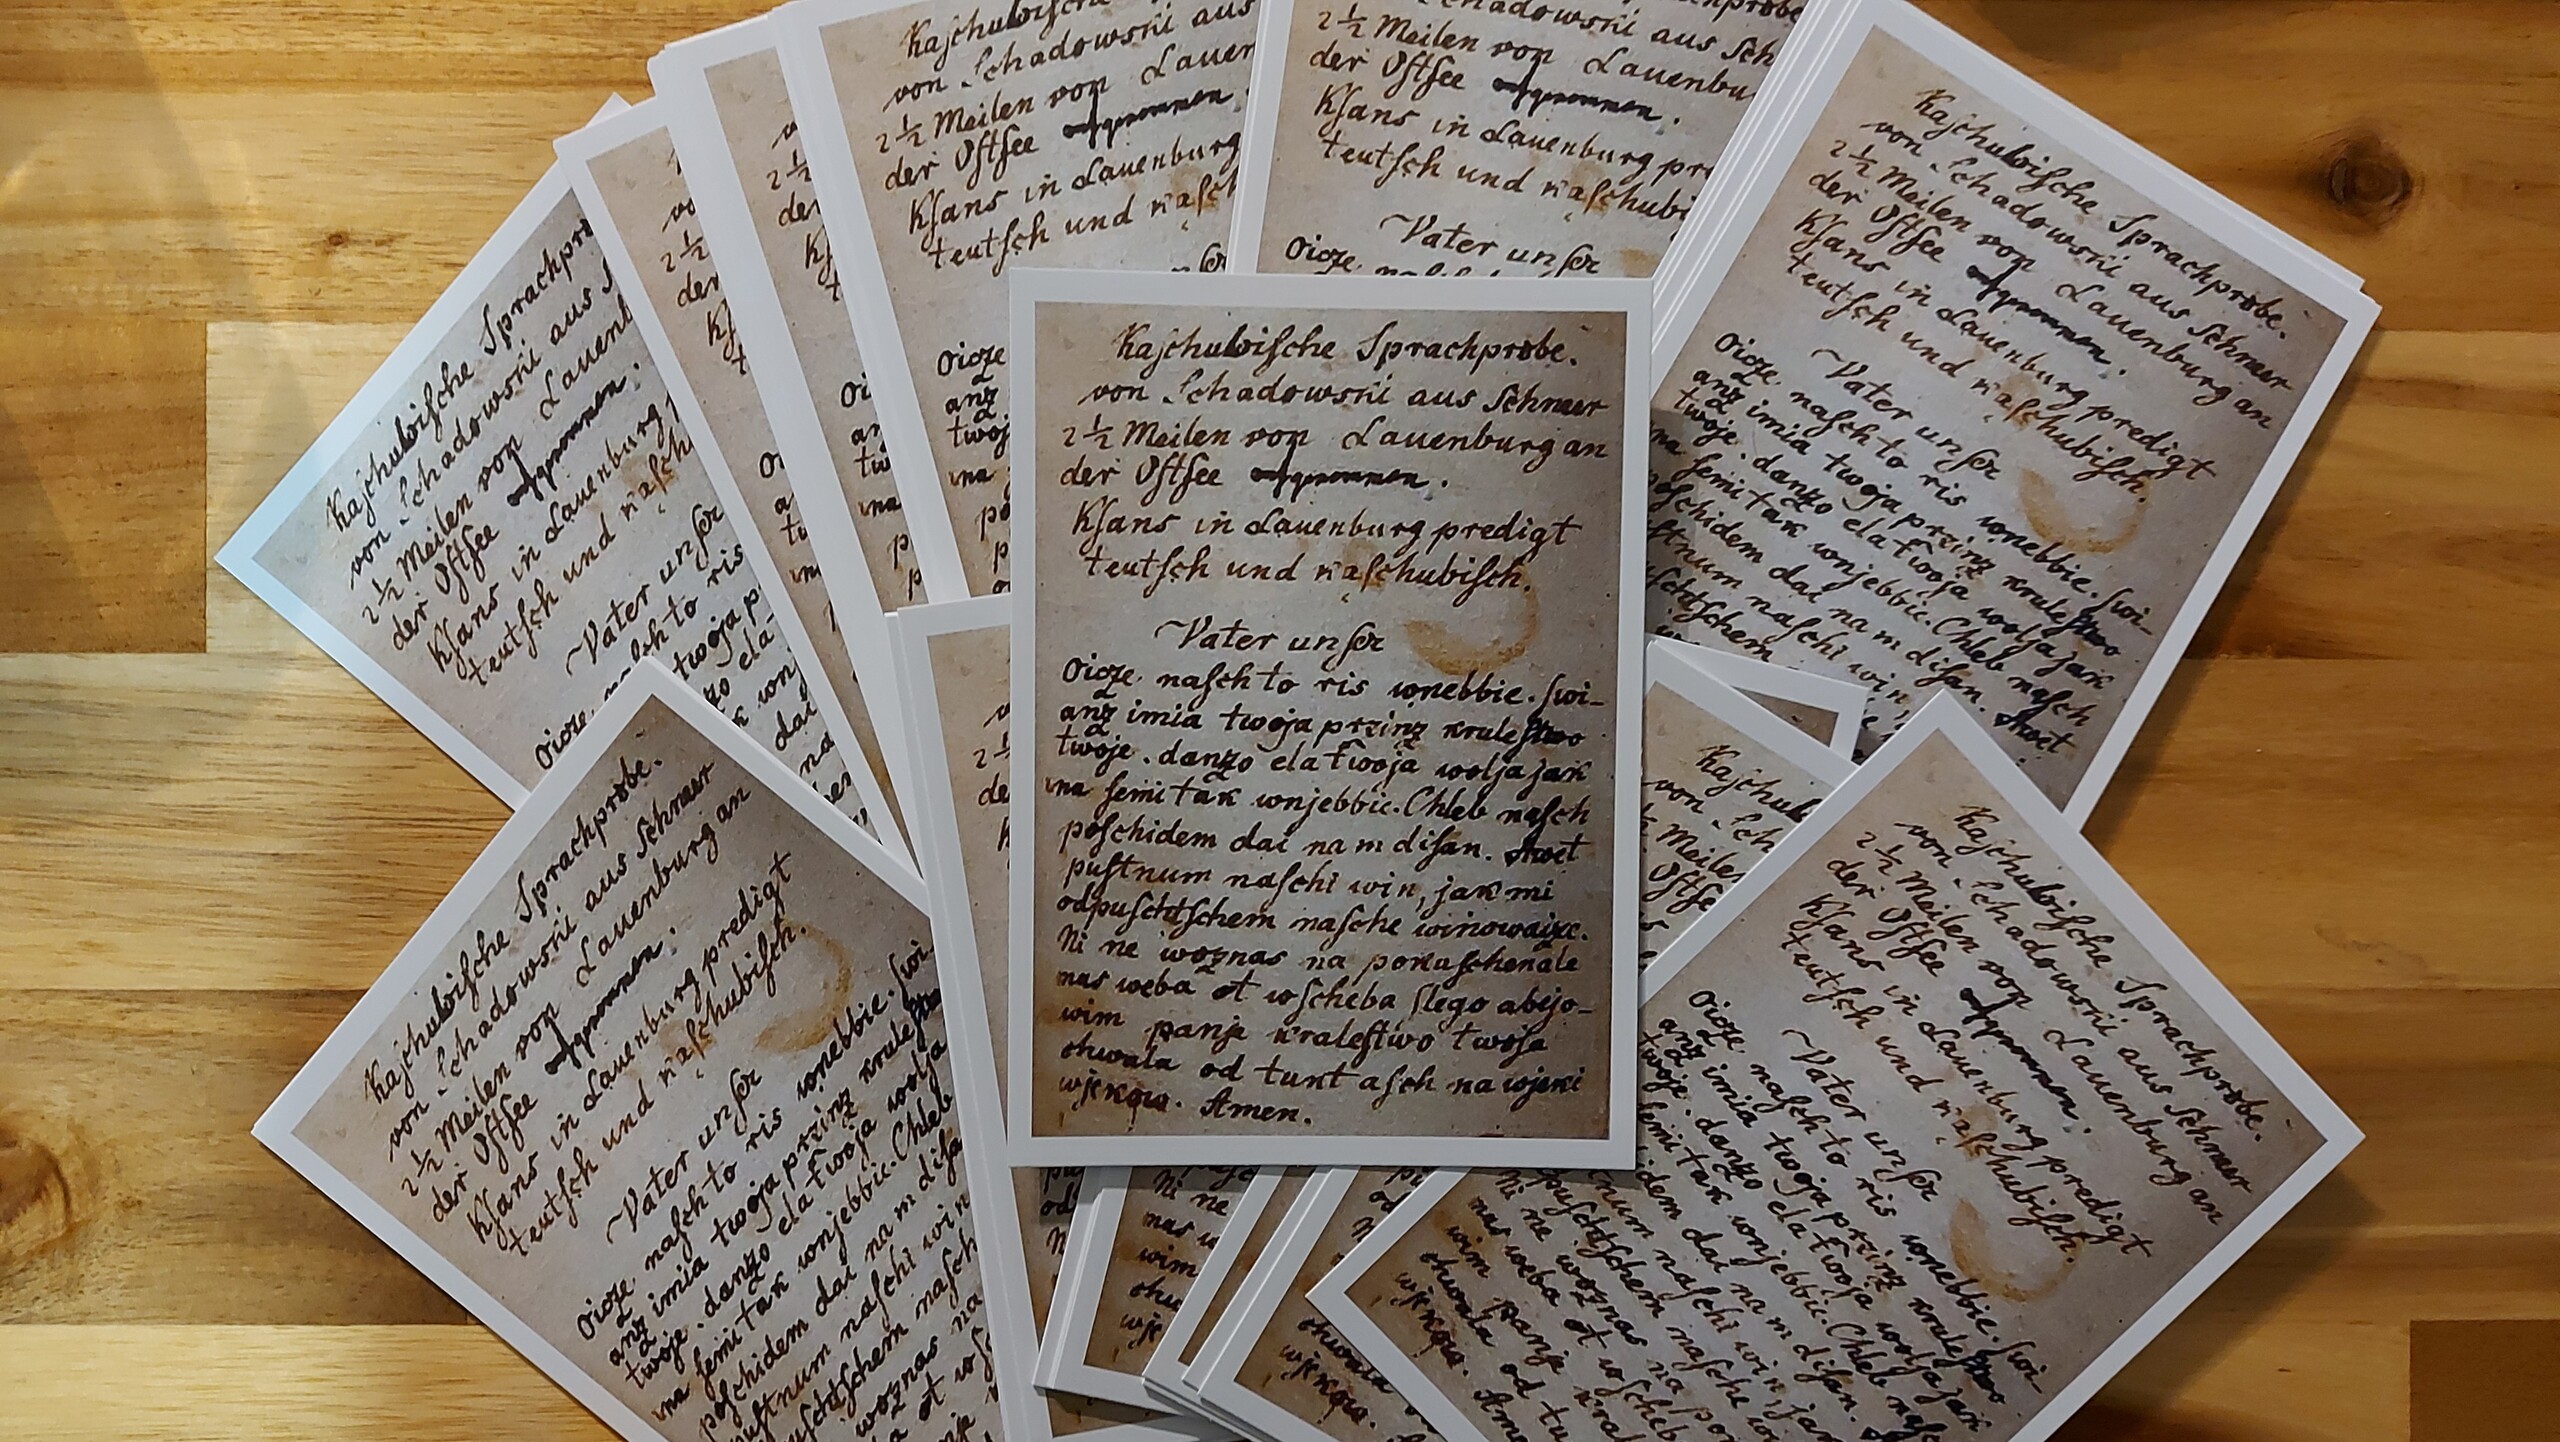 Kaschubische Sprachprobe.
von Schadowski aus Schmeer
2 1/2 Meilen von Lauenburg an
der Ostsee
Ksans in Lauenburg predigt
teutsch und kaschubisch.
Vater unser
Oicze nasch to ris wnebbie. swi-
anz imia twoja przinz krulestwo
twoje. danzo ela twoja wolja jak
wna semi tak wnjebbie. Chleb nasch
poschidem dai nam disan. Awet
pustnum naschi win, jak mi
odpuschtschem nasche winowaizc.
Ni ne woznas na pokaschenale
nas weba ot wscheba slego abejo-
wim panje kralestwo twoja
chwala od tunt asch na wjeki
wjekow. Amen.